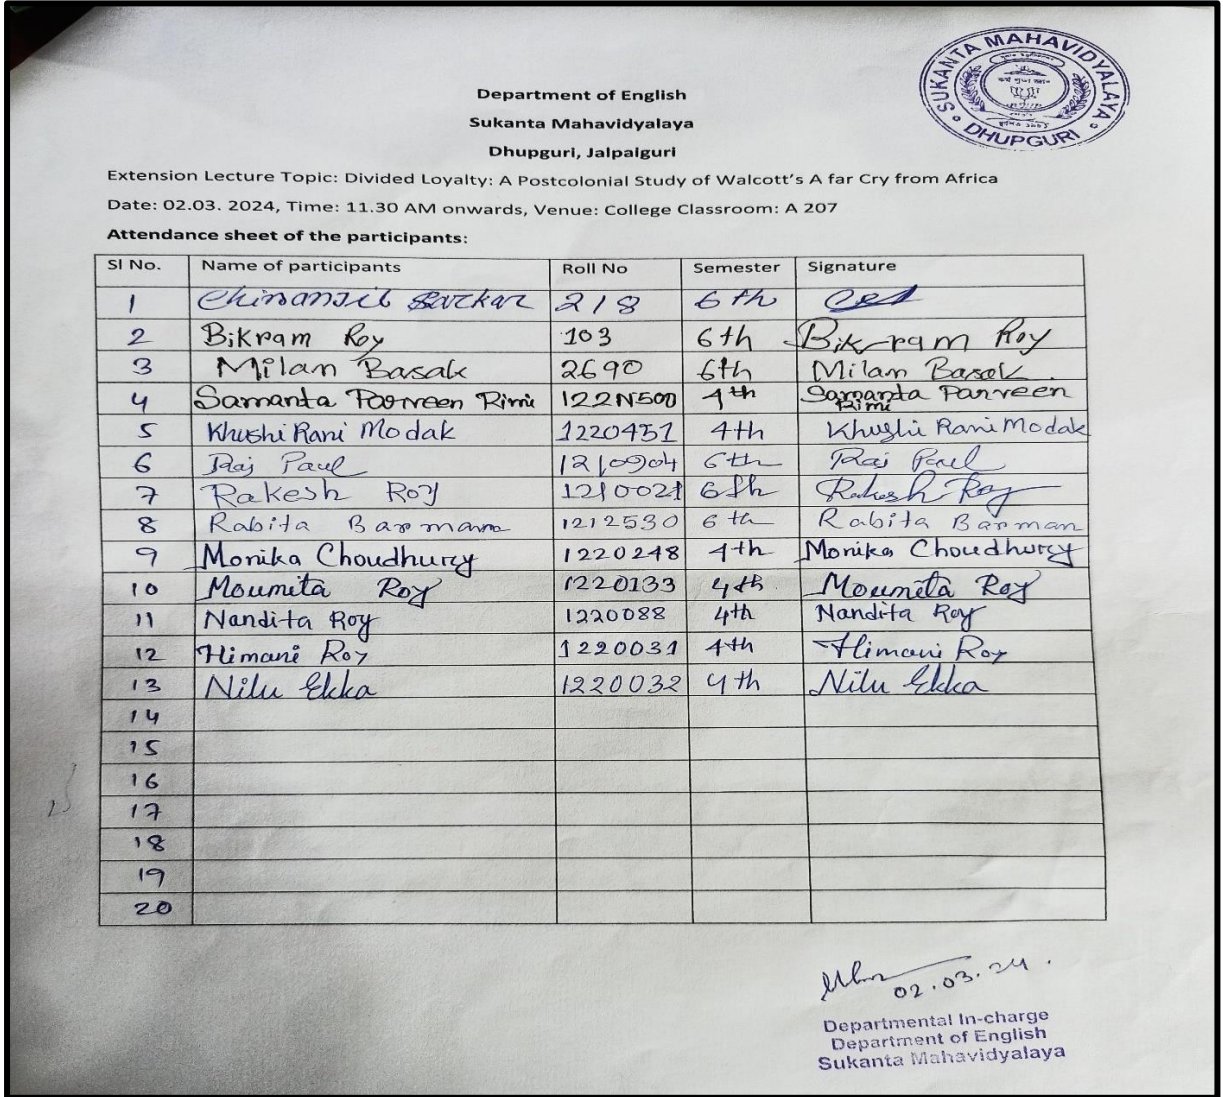 SUKANTA MAHAVIDYALAYA
DHUPGURI
Department of English
Sukanta Mahavidyalaya
Dhupguri, Jalpaiguri
Extension Lecture Topic: Divided Loyalty: A Postcolonial Study of Walcott's A far Cry from Africa
Date: 02.03. 2024, Time: 11.30 AM onwards, Venue: College Classroom: A 207
Attendance sheet of the participants:
Sl No. Name of participants Roll No Semester Signature
1 Chiranjit Sarkar 218 6th
2 Bikram Roy 103 6th Bikram Roy
3 Milan Basak 2690 6th Milan Basak
4 Samanta Parveen Rimi 122N500 4th Samanta Parveen Rimi
5 Khushi Rani Modak 1220451 4th Khushi Rani Modak
6 Raj Paul 1210904 6th Raj Paul
7 Rakesh Roy 1210021 6th Rakesh Roy
8 Rabita Barman 1212530 6th Rabita Barman
9 Monika Choudhury 1220248 4th Monika Choudhury
10 Moumita Roy 1220133 4th Moumita Roy
11 Nandita Roy 1220088 4th Nandita Roy
12 Himani Roy 1220031 4th Himani Roy
13 Nilu Ekka 1220032 4th Nilu Ekka
14
15
16
17
18
19
20
02.03.24
Departmental In-charge
Department of English
Sukanta Mahavidyalaya